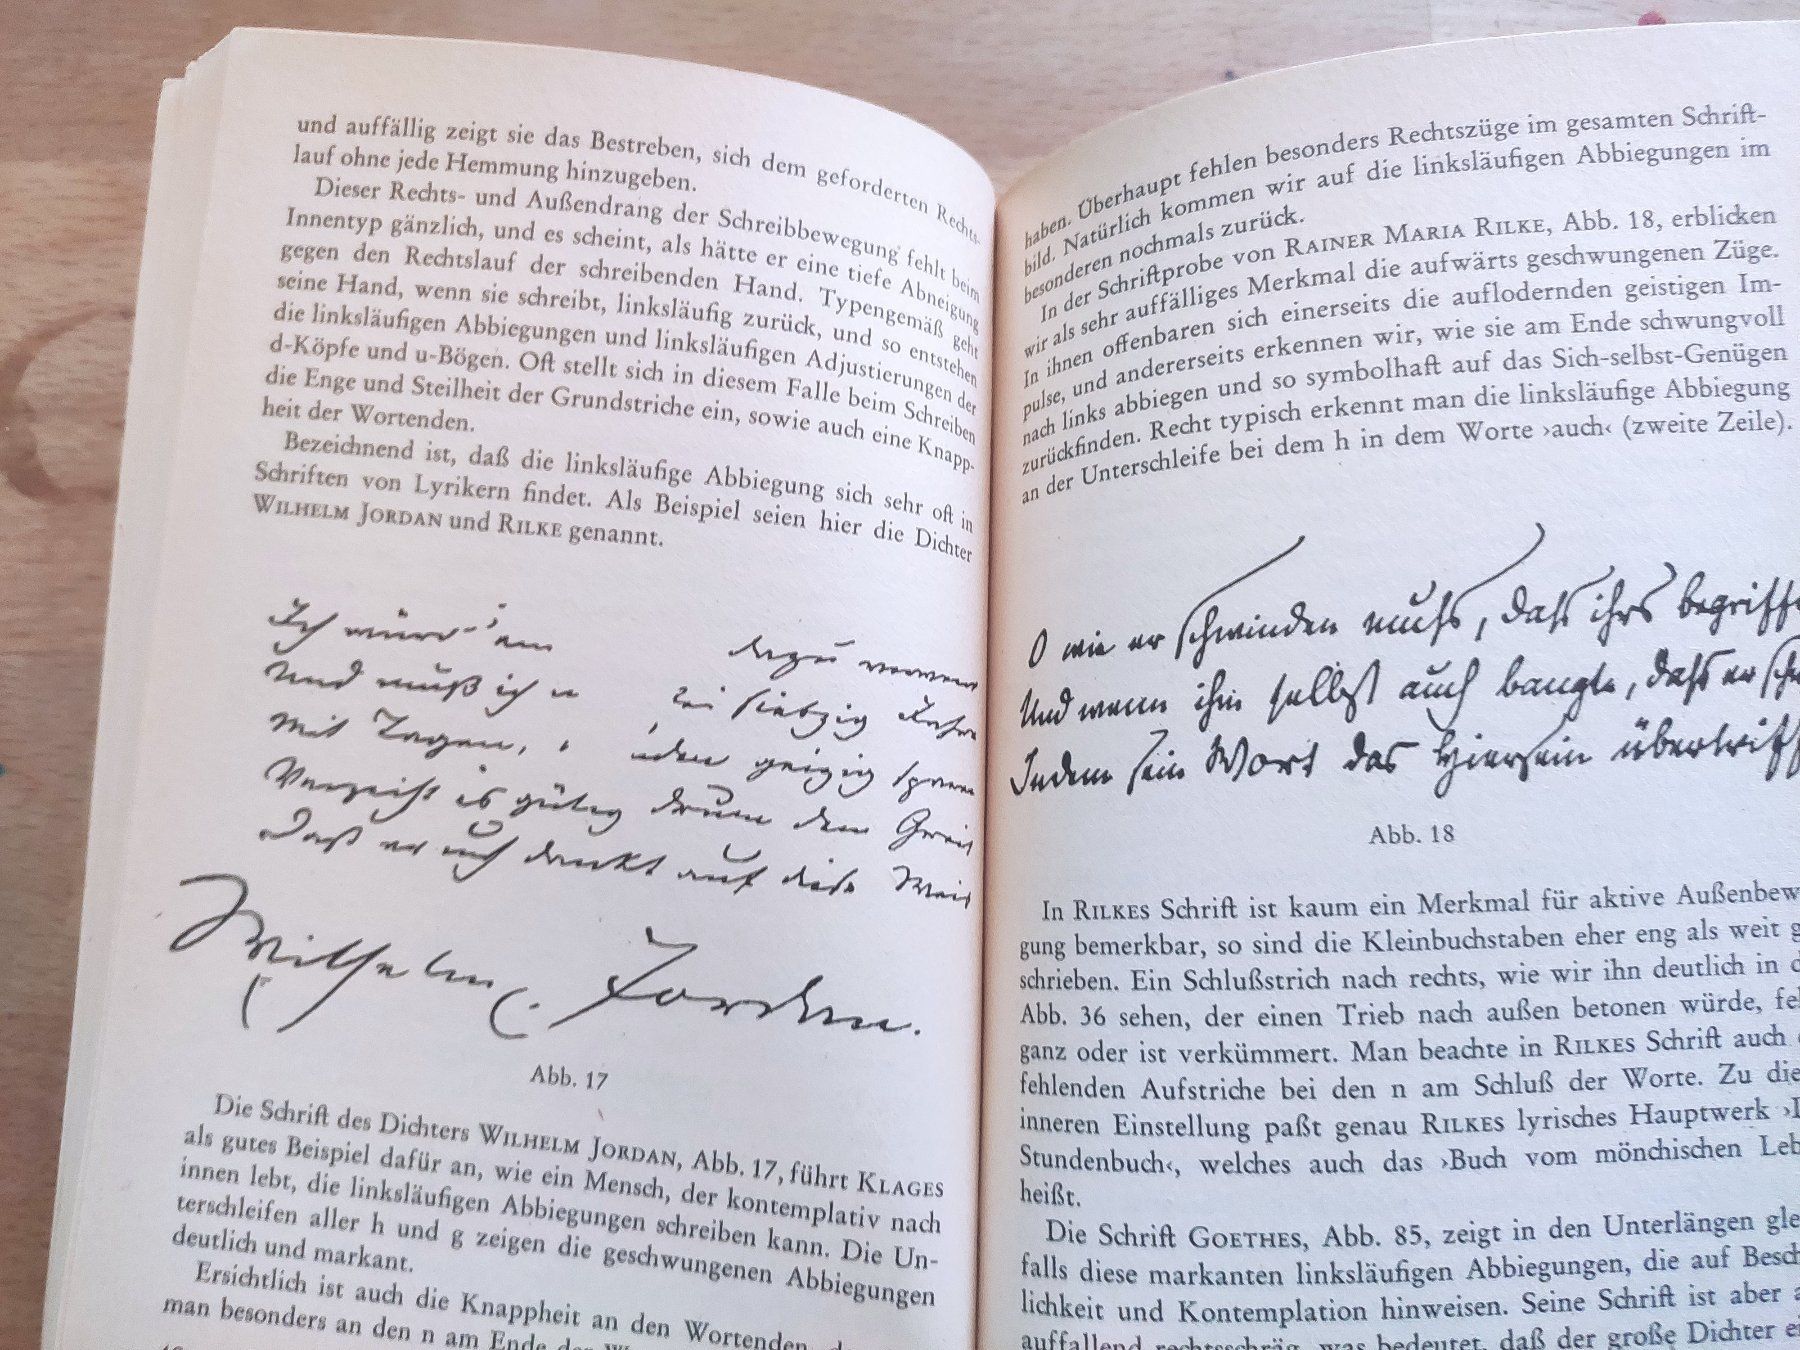 und auffällig zeigt sie das Bestreben, sich dem geforderten Rechts-
lauf ohne jede Hemmung hinzugeben.
Dieser Rechts- und Außendrang der Schreibbewegung fehlt beim
Innentyp gänzlich, und es scheint, als hätte er eine tiefe Abneigung
gegen den Rechtslauf der schreibenden Hand. Typengemäß geht
seine Hand, wenn sie schreibt, linksläufig zurück, und so entstehen
die linksläufigen Abbiegungen und linksläufigen Adjustierungen der
d-Köpfe und u-Bögen. Oft stellt sich in diesem Falle beim Schreiben
die Enge und Steilheit der Grundstriche ein, sowie auch eine Knapp-
heit der Wortenden.
Bezeichnend ist, daß die linksläufige Abbiegung sich sehr oft in
Schriften von Lyrikern findet. Als Beispiel seien hier die Dichter
WILHELM JORDAN und RILKE genannt.
Ich würd' dazu
Und muß ich siebzig Jahre
Mit Tagen, geizig
Verzeiht es gütig drum dem Greis
Daß er euch denkt auf diese Weis
Wilhelm Jordan.
Abb. 17
Die Schrift des Dichters WILHELM JORDAN, Abb. 17, führt KLAGES
als gutes Beispiel dafür an, wie ein Mensch, der kontemplativ nach
innen lebt, die linksläufigen Abbiegungen schreiben kann. Die Un-
terschleifen aller h und g zeigen die geschwungenen Abbiegungen
deutlich und markant.
Ersichtlich ist auch die Knappheit an den Wortenden,
man besonders an den n am Ende der
haben. Überhaupt fehlen besonders Rechtszüge im gesamten Schrift-
bild. Natürlich kommen wir auf die linksläufigen Abbiegungen im
besonderen nochmals zurück.
In der Schriftprobe von RAINER MARIA RILKE, Abb. 18, erblicken
wir als sehr auffälliges Merkmal die aufwärts geschwungenen Züge.
In ihnen offenbaren sich einerseits die auflodernden geistigen Im-
pulse, und andererseits erkennen wir, wie sie am Ende schwungvoll
nach links abbiegen und so symbolhaft auf das Sich-selbst-Genügen
zurückfinden. Recht typisch erkennt man die linksläufige Abbiegung
an der Unterschleife bei dem h in dem Worte ›auch‹ (zweite Zeile).
O wie er schwinden muss, dass ihrs begriffe
Und wenn ihm selbst auch bangte, dass er
Indem sein Wort das Hiersein übertriff
Abb. 18
In RILKES Schrift ist kaum ein Merkmal für aktive Außenbew
gung bemerkbar, so sind die Kleinbuchstaben eher eng als weit g
schrieben. Ein Schlußstrich nach rechts, wie wir ihn deutlich in d
Abb. 36 sehen, der einen Trieb nach außen betonen würde, feh
ganz oder ist verkümmert. Man beachte in RILKES Schrift auch
fehlenden Aufstriche bei den n am Schluß der Worte. Zu die
inneren Einstellung paßt genau RILKES lyrisches Hauptwerk ›D
Stundenbuch‹, welches auch das ›Buch vom mönchischen Leb
heißt.
Die Schrift GOETHES, Abb. 85, zeigt in den Unterlängen gle
falls diese markanten linksläufigen Abbiegungen, die auf Besch
lichkeit und Kontemplation hinweisen. Seine Schrift ist aber a
auffallend rechtsschräg, was bedeutet, daß der große Dichter ei